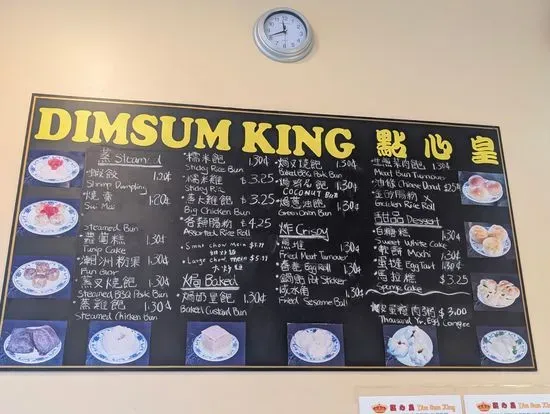 DIMSUM KING 點心皇
蒸 Steamed
蝦餃 1.20¢
Shrimp Dumpling
燒賣 1.20¢
Siu Mai
Steamed Bun
蘿蔔糕 1.30¢
Turnip Cake
潮洲粉果 1.30¢
Fun Gor
蒸叉燒飽 1.30¢
Steamed BBQ Pork Bun
蒸雞飽 1.30¢
Steamed Chicken Bun
糯米飽 1.30¢
Sticky Rice Bun
糯米雞 $3.25
Sticky Rice
蒸大雞飽 $3.25
Big Chicken Bun
各類腸粉 $4.25
Assorted Rice Roll
Small Chow Mein
Large Chow Mein
焗 Baked
焗奶皇飽 1.30¢
Baked Custard Bun
焗叉燒飽 1.30¢
Baked BBQ Pork Bun
1.30¢
COCONUT BUN
1.30¢
Green Onion Bun
炸 Crispy
1.30¢
Fried Meat Turnover
1.30¢
Egg Roll
鍋貼 Pot Sticker
咸水角 1.30¢
Fried Sesame Ball
1.30¢
Meat Bun Turnovers
油條 Chinese Donut $2.25
x
Rice Roll
甜品 Dessert
白糖糕 1.30¢
Sweet White Cake
Mochi 1.30¢
蛋撻 Egg Tart 1.30¢
馬拉糕 $3.25
Sponge Cake
皮蛋瘦肉粥 $3.00
Thousand Yr. Egg Congee
點心皇 Dim Sum King
點心皇 Dim Sum King